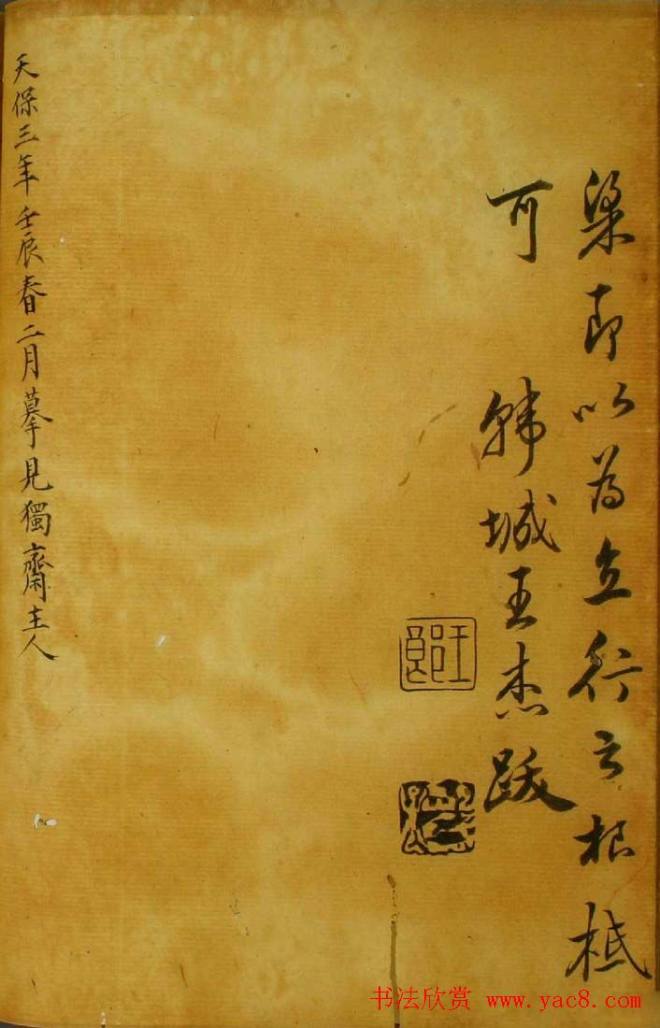 梁即以為立行之根柢
可　韓城王杰跋
天保三年壬辰春二月摹見獨齋主人
书法欣赏 www.yac8.com